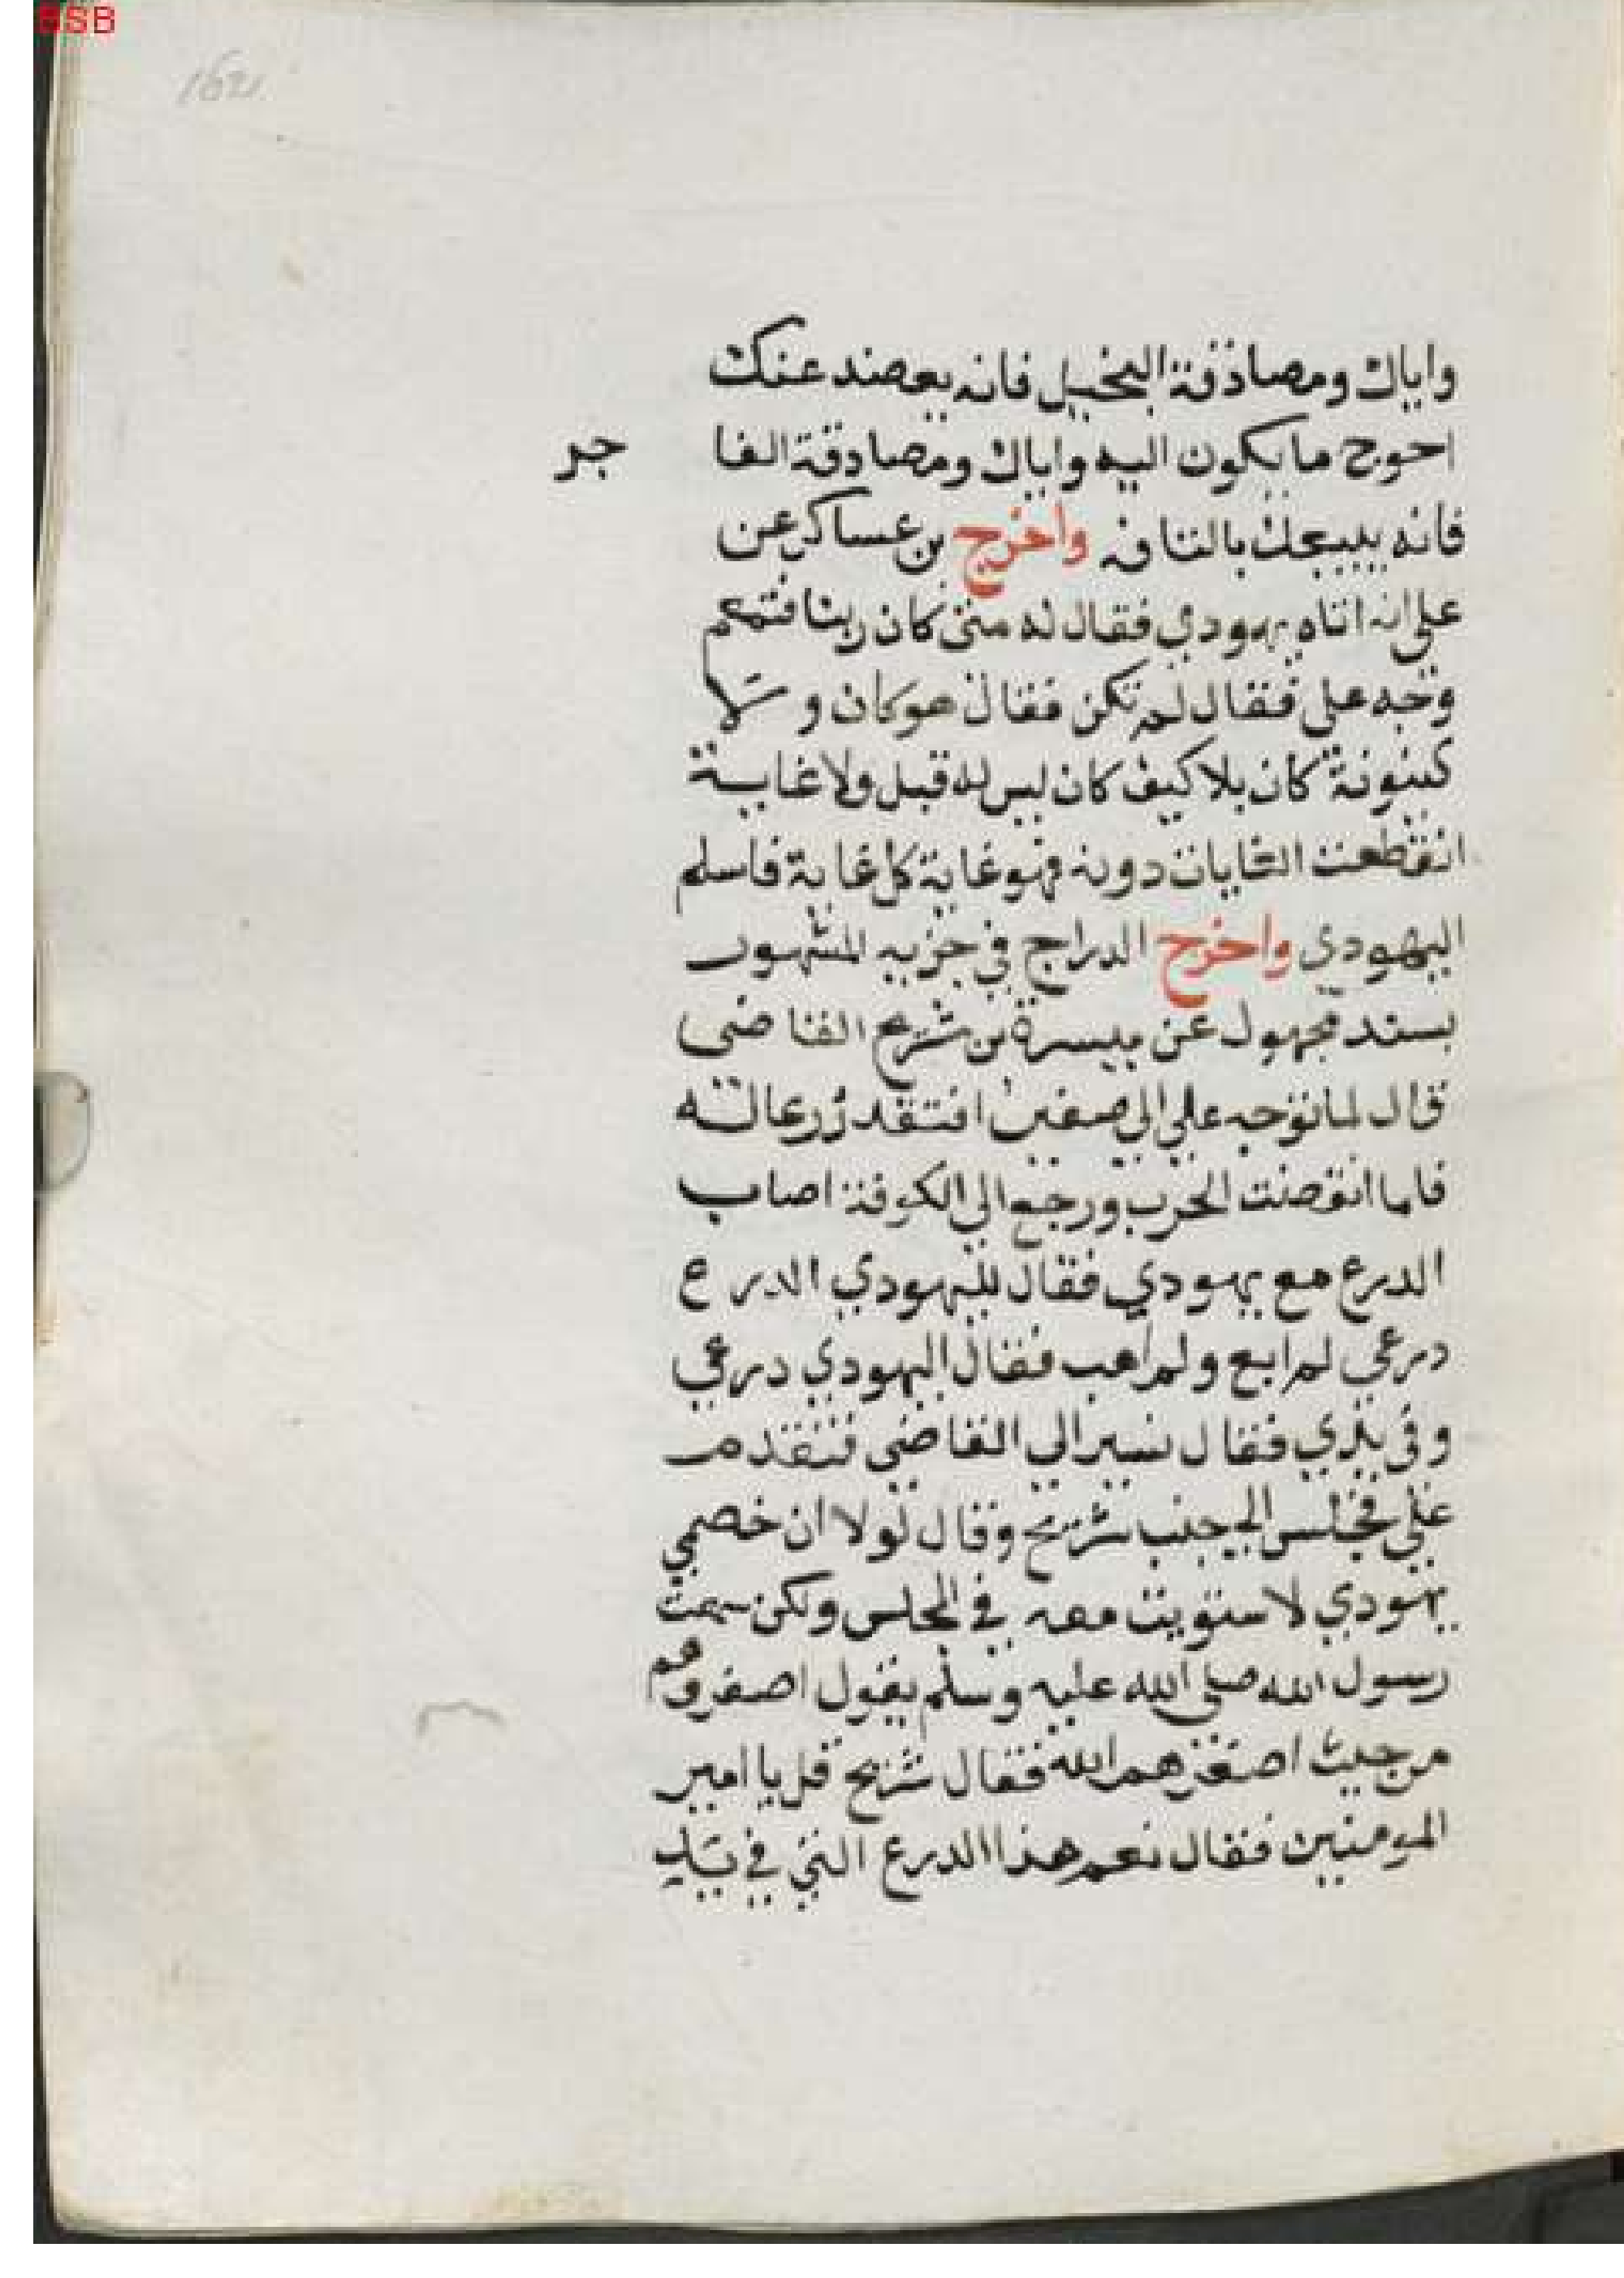 BSB
واياك ومصادقة البخيل فانه يعضد عنك
احوج ما يكون اليه واياك ومصادقة الفا جر
فانه يبيعك بالتافه واخرج بن عساكر عن
على انه اتاه يهودي فقال له متى كان ربنا فتمعم
وجه على فقال لم تكن فقال هو كان و لا
كينونة كان بلا كيف كان ليس له قبل ولا غاية
انقطعت الغايات دونه فهو غاية كل غاية فاسلم
اليهودي واخرج الدراج في جزيه المشهور
بسند مجهول عن ميسرة بن شريح القاضى
قال لما توجه على الي صفين افتقد درعا له
فلما انقضت الحرب ورجع الي الكوفة اصاب
الدرع مع يهودي فقال لليهودي الدرع
درعي لم ابع ولم اهب فقال اليهودي درعي
وفى يدي فقال نسير الي القاضى فتقدم
علي فجلس الي جنب شريح وقال لولا ان خصمي
يهودي لاستويت معه في المجلس ولكن سمعت
رسول الله صلى الله عليه وسلم يقول اصغروهم
من حيث اصغرهم الله فقال شريح قل يا امير
المومنين فقال نعم هذا الدرع التي في يد